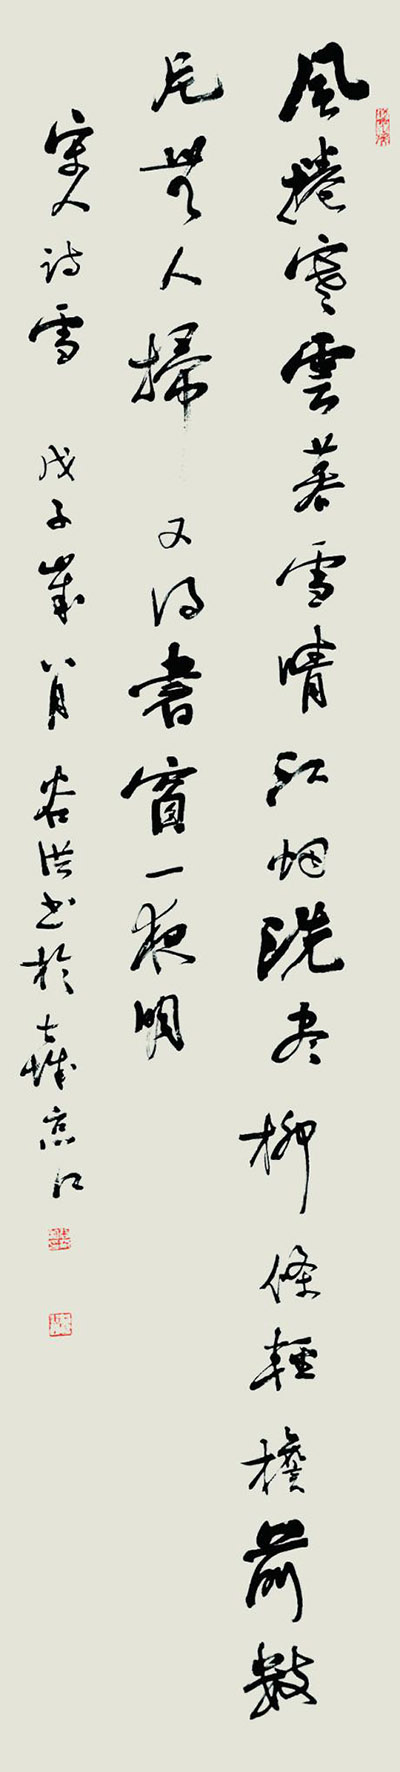 風捲寒雲暮雪晴江烟洗尽柳條輕檐前數
片無人掃又得書窗一夜明
宋人诗雪 戊子歲八月谷洪书於古城京江